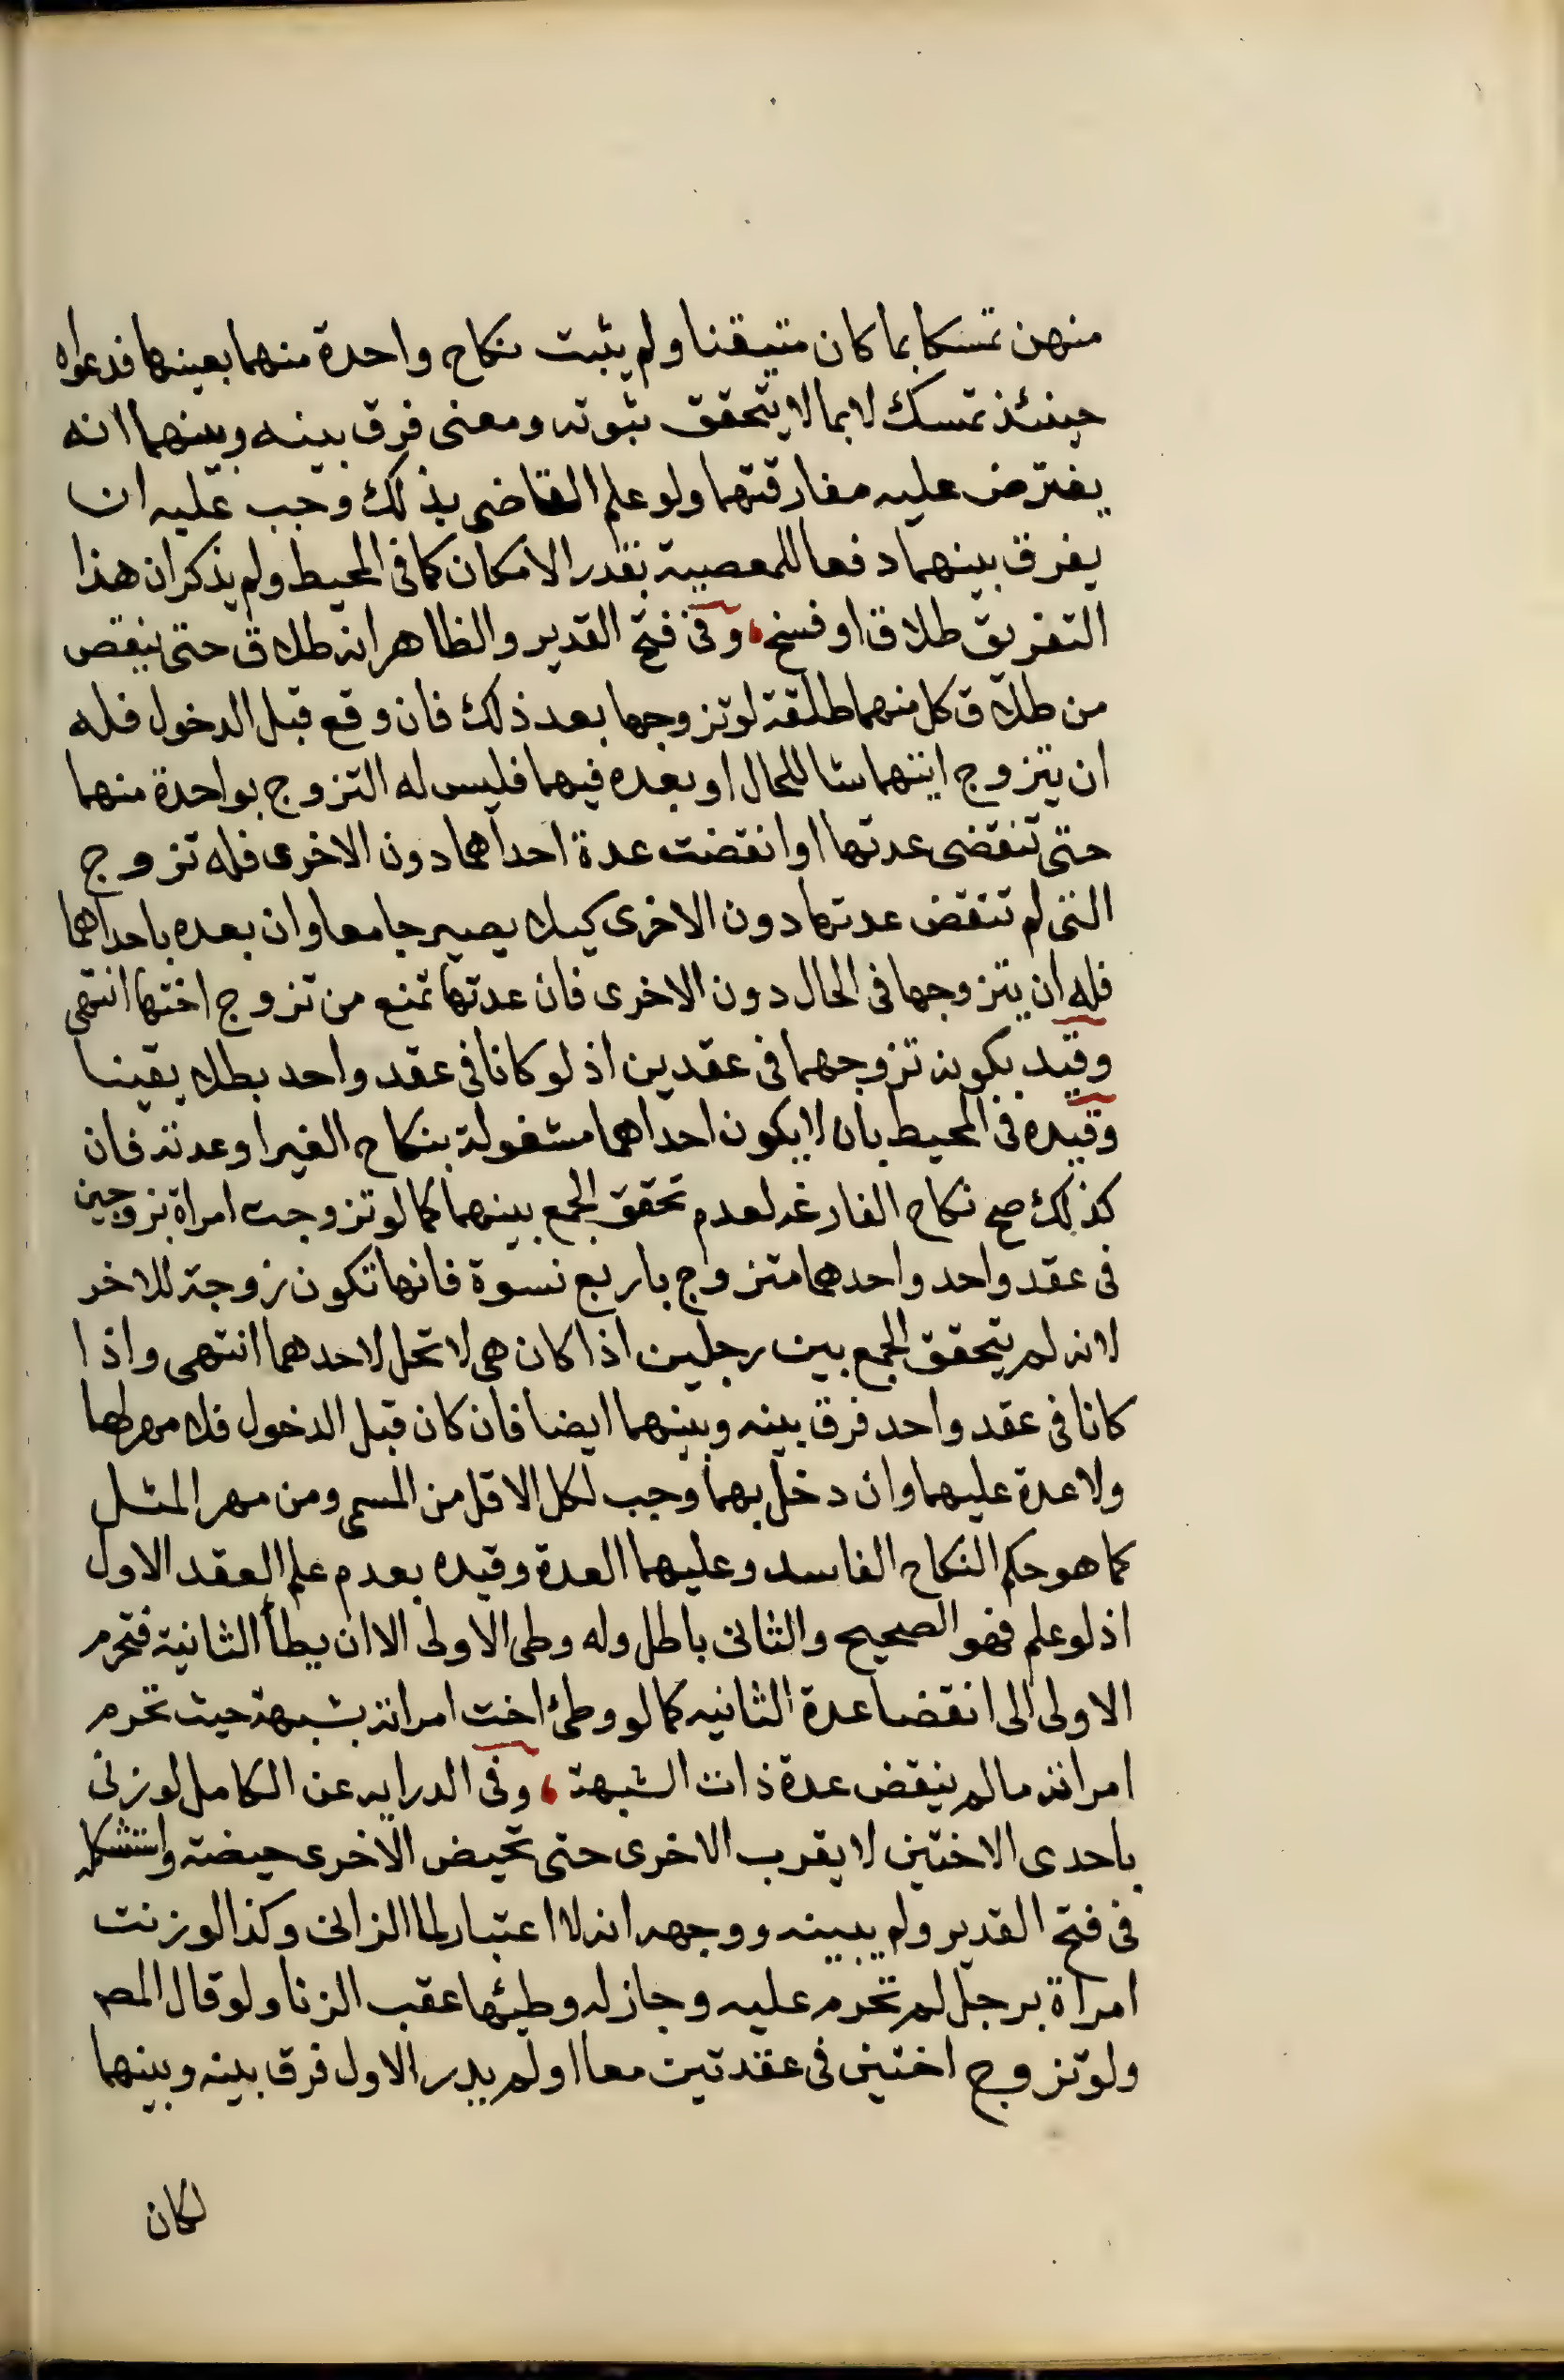 منهن تمسكا بما كان متيقنا ولم يثبت نكاح واحدة منهما بعينها فدعواه
حينئذ تمسك لا بما لا يتحقق ثبوته ومعنى فرق بينه وبينهما انه
يفترض عليه مفارقتهما ولو علم القاضى بذلك وجب عليه ان
يفرق بينهما دفعا للمعصية بقدر الامكان كما فى المحيط ولم يذكر ان هذا
التفريق طلاق او فسخ، وفى فتح القدير والظاهر انه طلاق حتى ينقص
من طلاق كل منهما طلقة لو تزوجها بعد ذلك فان وقع قبل الدخول فله
ان يتزوج ايتهما شا للحال او بعده فيهما فليس له التزوج بواحدة منهما
حتى تنقضى عدتها او انقضت عدة احداهما دون الاخرى فله تزوج
التى لم تنقض عدتها دون الاخرى كيلا يصير جامعا وان بعده باحداهما
فله ان يتزوجها فى الحال دون الاخرى فان عدتها تمنع من تزوج اختها انتهى
وقيد بكونه تزوجهما فى عقدين اذ لو كانا فى عقد واحد بطلا يقينا
وقيده فى المحيط بان لا يكون احداهما مشغولة بنكاح الغير او عدته فان
كذلك صح نكاح الفارغه لعدم تحقق الجمع بينهما كما لو تزوجت امراة بزوجين
فى عقد واحد واحدهما متزوج باربع نسوة فانها تكون زوجة للاخر
لانه لم يتحقق الجمع بين رجلين اذا كان هى لا تحل لاحدهما انتهى واذا
كانا فى عقد واحد فرق بينه وبينهما ايضا فان كان قبل الدخول فلا مهر لهما
ولا عدة عليهما وان دخل بهما وجب لكل الاقل من المسمى ومن مهر المثل
كما هو حكم النكاح الفاسد وعليهما العدة وقيده بعدم علم العقد الاول
اذ لو علم فهو الصحيح والثانى باطل وله وطى الاولى الا ان يطأ الثانية فتحرم
الاولى الى انقضا عدة الثانيه كما لو وطئ اخت امراته بشبهة حيث تحرم
امراته ما لم ينقض عدة ذات الشبهة، وفى الدرايه عن الكامل لو زنى
باحدى الاختين لا يقرب الاخرى حتى تحيض الاخرى حيضة واستشكله
فى فتح القدير ولم يبينه ووجهه انه لا اعتبار لما الزانى وكذا لو زنت
امراة برجل لم تحرم عليه وجاز له وطيئها عقب الزنا ولو قال المص
ولو تزوج اختين فى عقدتين معا او لم يدر الاول فرق بينه وبينهما
لكان